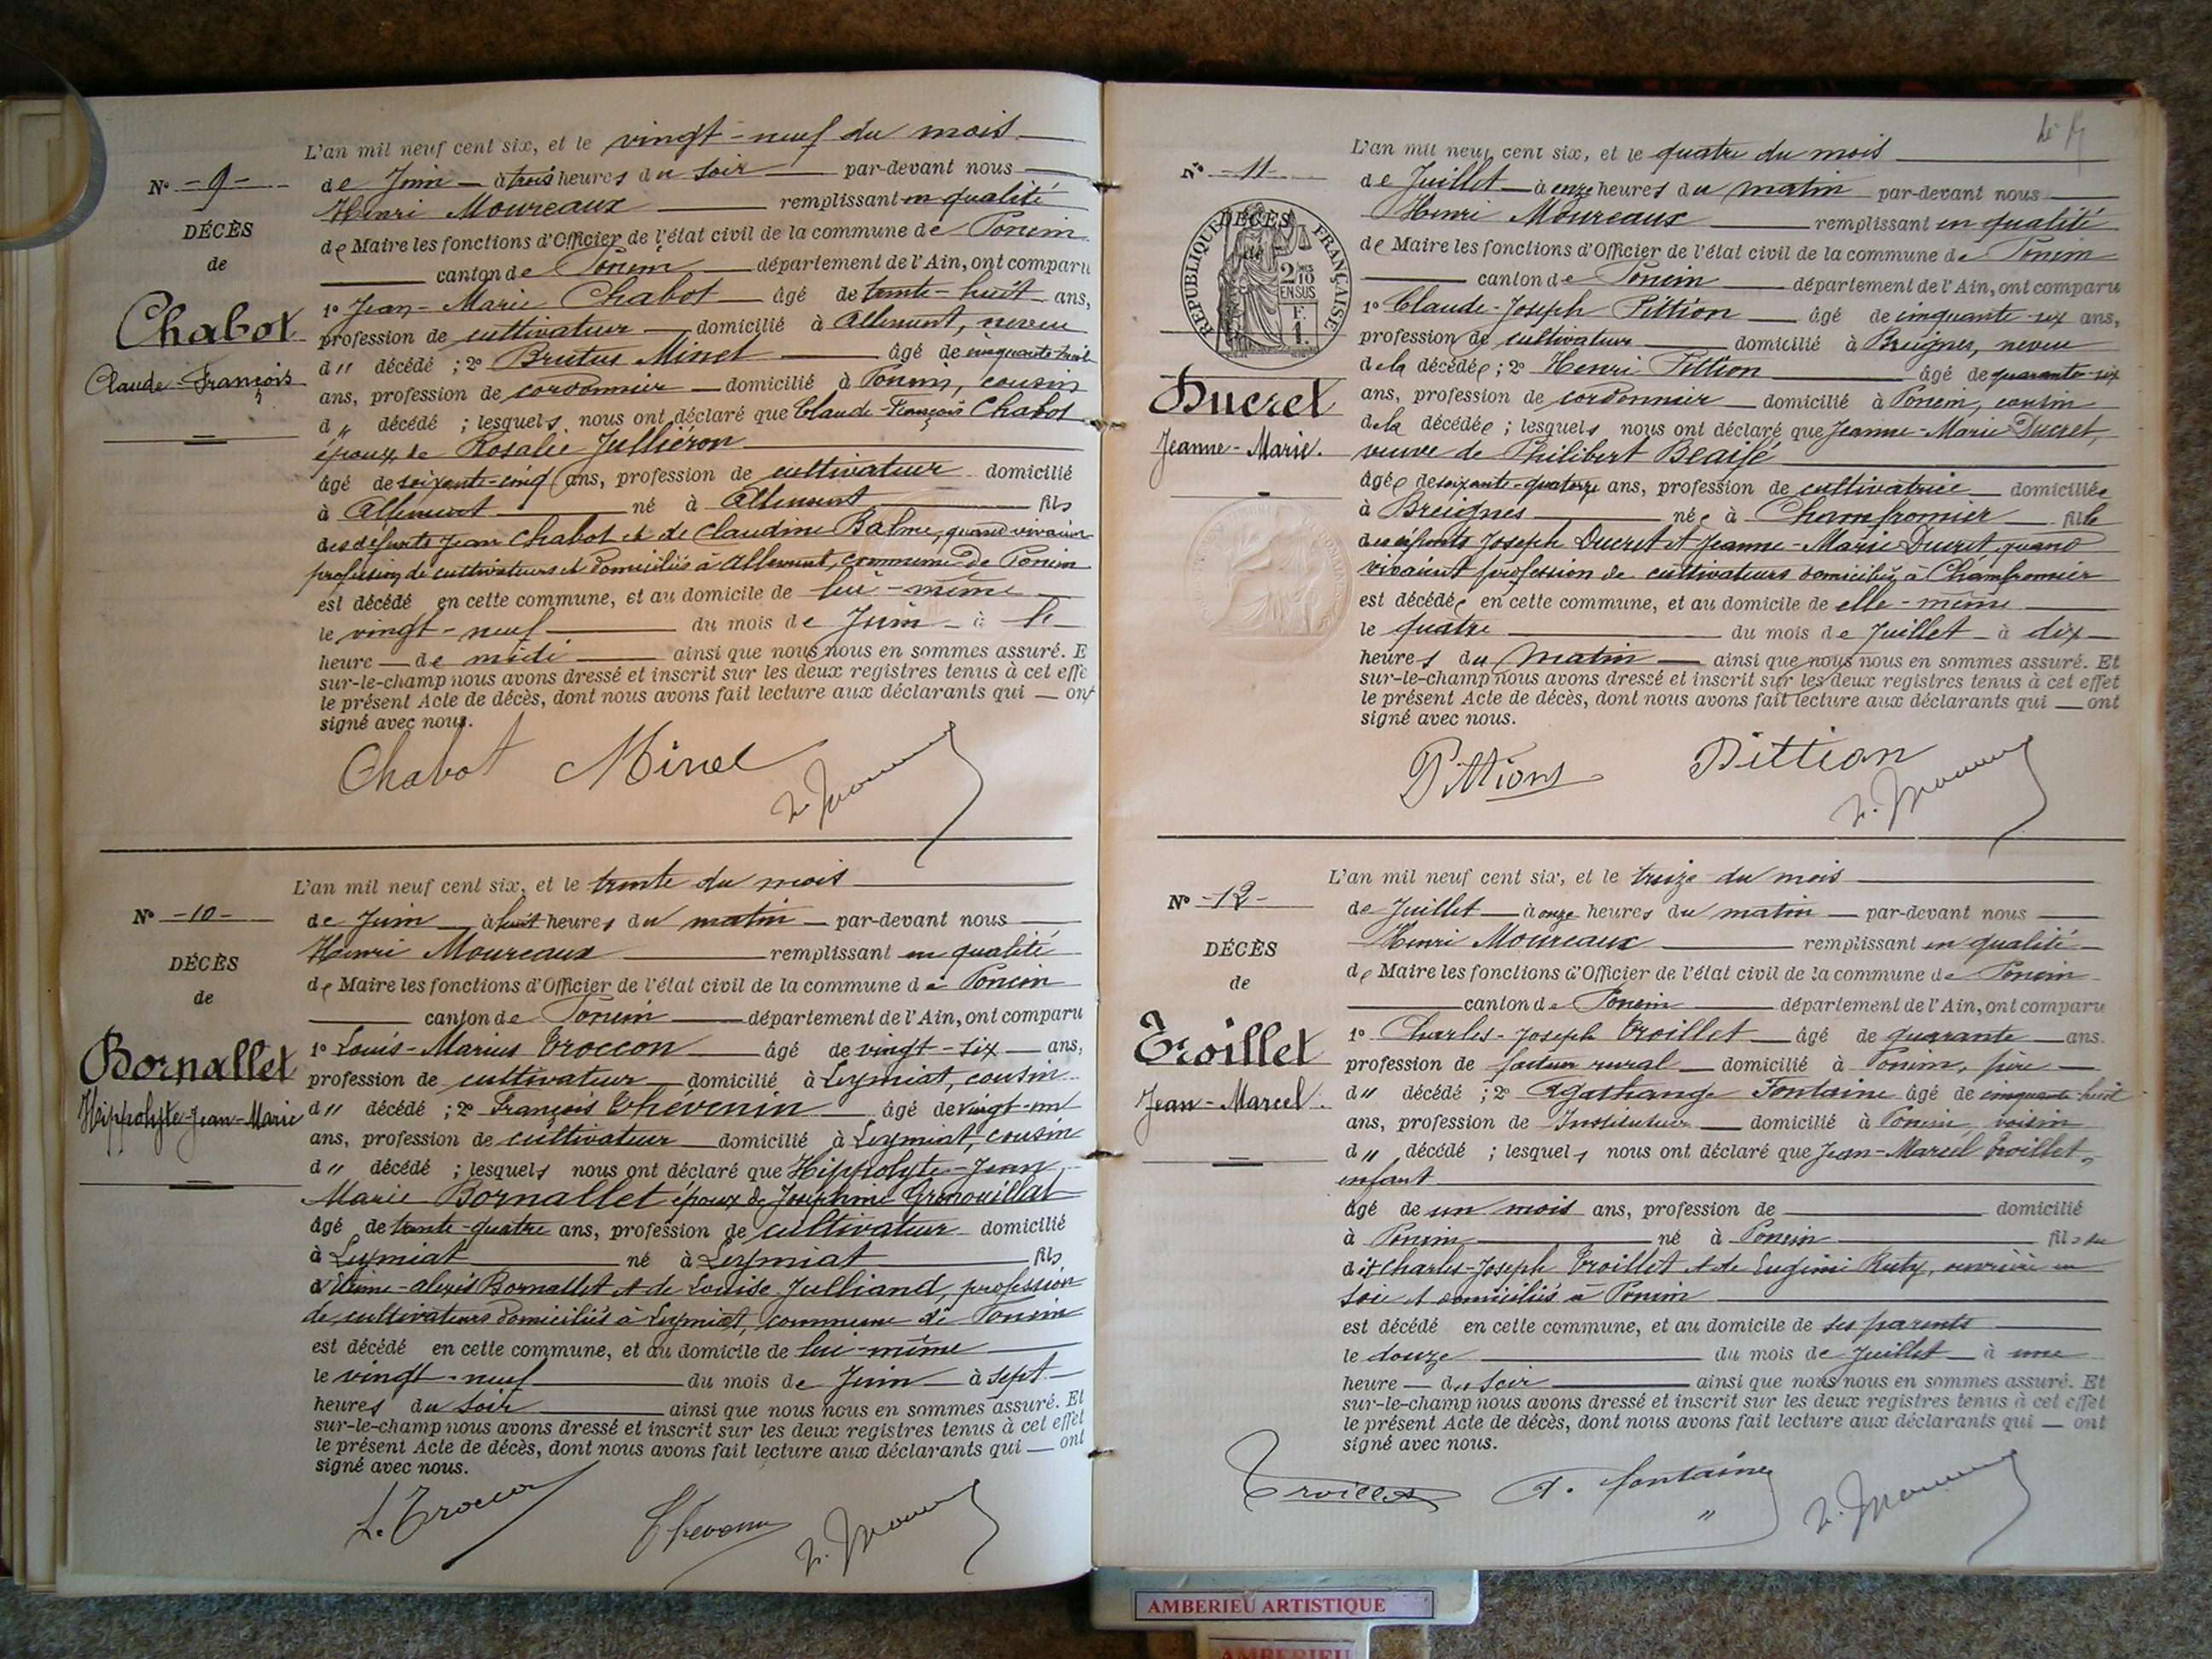 L'an mil neuf cent six, et le vingt-neuf du mois
N° -9-
de Juin à trois heures du soir par-devant nous
Henri Moureaux remplissant en qualité
DÉCÈS
de Maire les fonctions d'Officier de l'état civil de la commune de Poncin
de
canton de Poncin département de l'Ain, ont comparu
Chabot
Claude-François
1° Jean-Marie Chabot âgé de trente-huit ans,
profession de cultivateur domicilié à Allement, neveu
d" décédé ; 2° Brutus Minet âgé de cinquante-huit
ans, profession de cordonnier domicilié à Poncin, cousin
d" décédé ; lesquels nous ont déclaré que Claude-François Chabot
époux de Rosalie Julliéron
âgé de soixante-cinq ans, profession de cultivateur domicilié
à Allement né à Allement fils
des défunts Jean Chabot et de Claudine Balme, quand vivaient
profession de cultivateurs et domiciliés à Allement, commune de Poncin
est décédé en cette commune, et au domicile de lui-même
le vingt-neuf du mois de Juin à
heure de midi ainsi que nous nous en sommes assuré. E
sur-le-champ nous avons dressé et inscrit sur les deux registres tenus à cet effe
le présent Acte de décès, dont nous avons fait lecture aux déclarants qui ont
signé avec nous.
Chabot Minet
L'an mil neuf cent six, et le trente du mois
N° -10-
de Juin à huit heures du matin par-devant nous
Henri Moureaux remplissant en qualité
DÉCÈS
de Maire les fonctions d'Officier de l'état civil de la commune de Poncin
de
canton de Poncin département de l'Ain, ont comparu
Bornallet
Hippolyte-Jean-Marie
1° Louis-Marius Troccon âgé de vingt-six ans,
profession de cultivateur domicilié à Leymiat, cousin
d" décédé ; 2° François Thévenin âgé de vingt-un
ans, profession de cultivateur domicilié à Leymiat, cousin
d" décédé ; lesquels nous ont déclaré que Hippolyte-Jean
Marie Bornallet époux de Joséphine Grenouillat
âgé de trente-quatre ans, profession de cultivateur domicilié
à Leymiat né à Leymiat fils
-alexis Bornallet et de Louise Julliand, profession
de cultivateurs domiciliés à Leymiat, commune de Poncin
est décédé en cette commune, et au domicile de lui-même
le vingt-neuf du mois de Juin à sept
heures du soir ainsi que nous nous en sommes assuré. Et
sur-le-champ nous avons dressé et inscrit sur les deux registres tenus à cet effet
le présent Acte de décès, dont nous avons fait lecture aux déclarants qui ont
signé avec nous.
L. Troccon Thevenin
L'an mil neuf cent six, et le quatre du mois
N° -11-
de Juillet à onze heures du matin par-devant nous
Henri Moureaux remplissant en qualité
DÉCÈS
de
RÉPUBLIQUE FRANÇAISE
2/10 EN SUS
F. 1.
de Maire les fonctions d'Officier de l'état civil de la commune de Poncin
canton de Poncin département de l'Ain, ont comparu
Ducret
Jeanne-Marie.
1° Claude-Joseph Pittion âgé de cinquante-six ans,
profession de cultivateur domicilié à Breignes, neveu
de la décédée ; 2° Henri Pittion âgé de quarante-six
ans, profession de cordonnier domicilié à Poncin, cousin
de la décédée ; lesquels nous ont déclaré que Jeanne-Marie Ducret,
veuve de Philibert
âgée de soixante-quatorze ans, profession de cultivatrice domiciliée
à Breignes née à Chamfromier fille
des défunts Joseph Ducret et Jeanne-Marie Ducret, quand
vivaient profession de cultivateurs domiciliés à Chamfromier
est décédée en cette commune, et au domicile de elle-même
le quatre du mois de Juillet à dix
heures du matin ainsi que nous nous en sommes assuré. Et
sur-le-champ nous avons dressé et inscrit sur les deux registres tenus à cet effet
le présent Acte de décès, dont nous avons fait lecture aux déclarants qui ont
signé avec nous.
Pittion Pittion
L'an mil neuf cent six, et le treize du mois
N° -12-
de Juillet à onze heures du matin par-devant nous
Henri Moureaux remplissant en qualité
DÉCÈS
de Maire les fonctions d'Officier de l'état civil de la commune de Poncin
de
canton de Poncin département de l'Ain, ont comparu
Troillet
Jean-Marcel.
1° Charles-Joseph Troillet âgé de quarante ans.
profession de facteur rural domicilié à Poncin, père
d" décédé ; 2° Agathange Fontaine âgé de cinquante-huit
ans, profession de Instituteur domicilié à Poncin, voisin
d" décédé ; lesquels nous ont déclaré que Jean-Marcel Troillet,
enfant
âgé de un mois ans, profession de domicilié
à Poncin né à Poncin fils du
dit Charles-Joseph Troillet et de Eugénie Ruty, ouvrière en
soie et domiciliés à Poncin
est décédé en cette commune, et au domicile de ses parents
le douze du mois de Juillet à une
heure du soir ainsi que nous nous en sommes assuré. Et
sur-le-champ nous avons dressé et inscrit sur les deux registres tenus à cet effet
le présent Acte de décès, dont nous avons fait lecture aux déclarants qui ont
signé avec nous.
Troillet A. Fontaine
AMBERIEU ARTISTIQUE
AMBERIEU